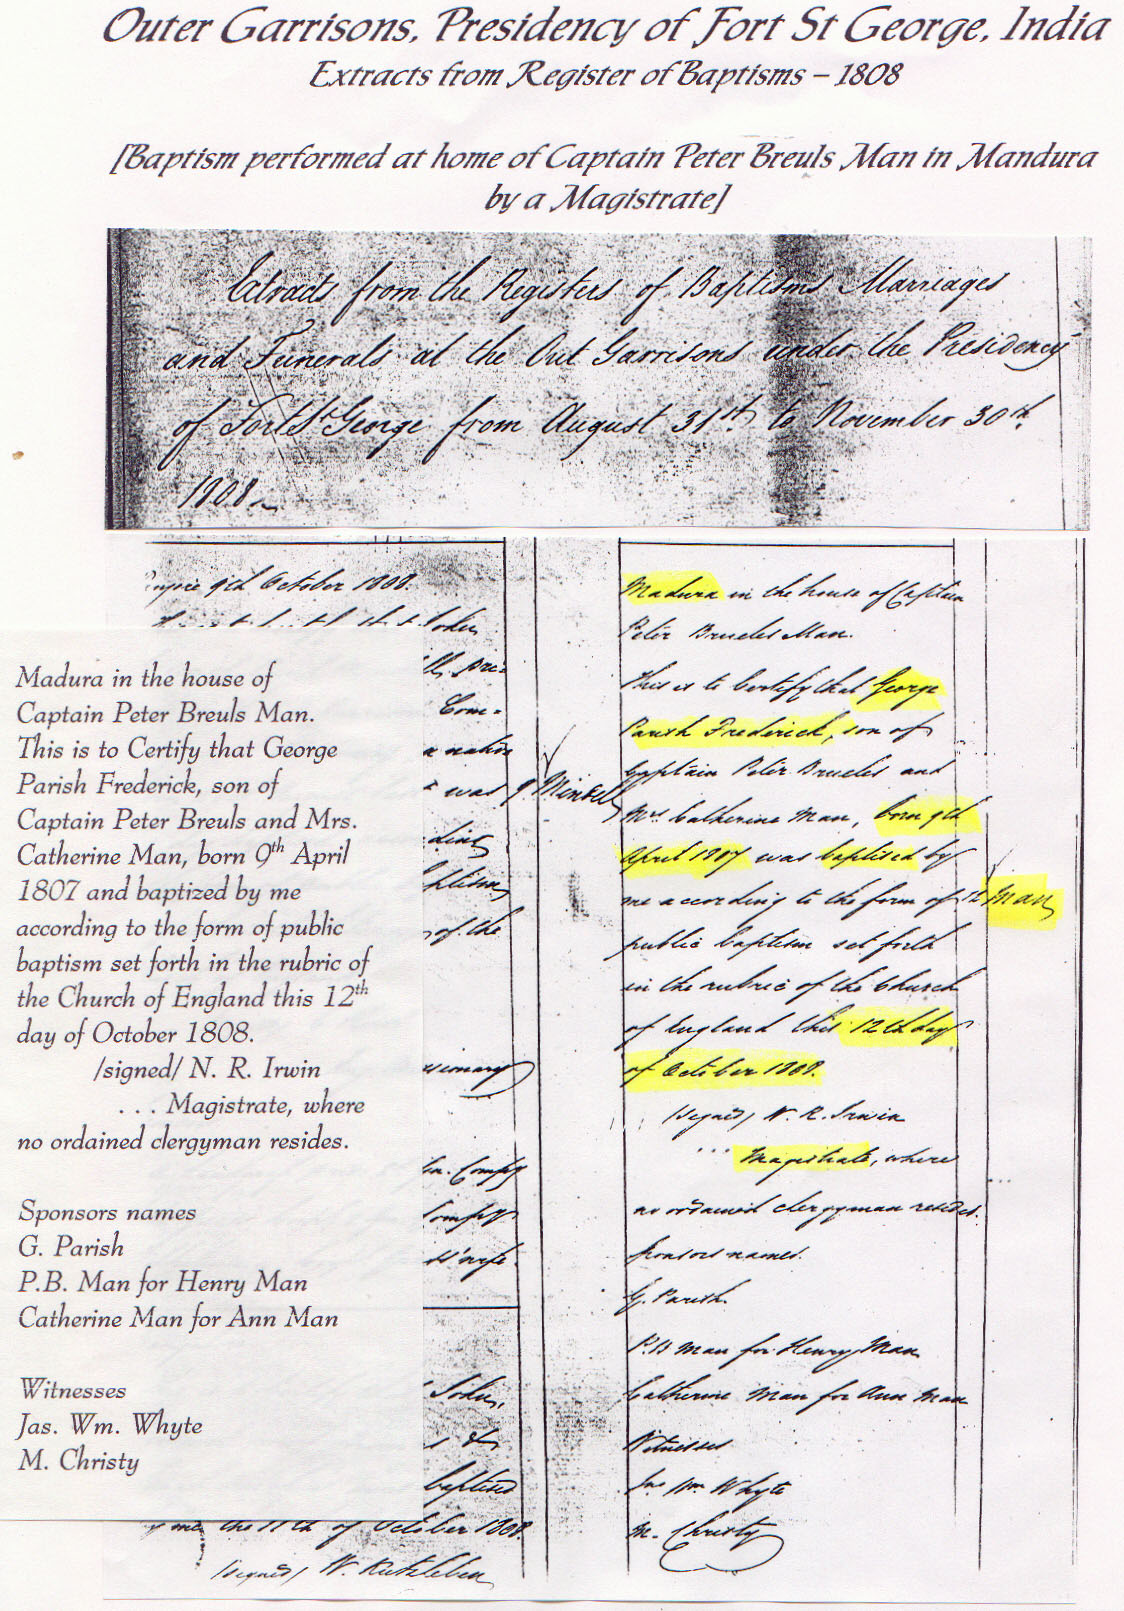 Outer Garrisons, Presidency of Fort St George, India
Extracts from Register of Baptisms – 1808
[Baptism performed at home of Captain Peter Breuls Man in Mandura
by a Magistrate]
Extracts from the Registers of Baptisms Marriages
and Funerals at the Out Garrisons under the Presidency
of Fort St George from August 31st to November 30th
1808
9th October 1808.
Com=
a native
was
of the
Compy
baptised
me the 11th of October 1808.
(signed)
Madura in the house of
Captain Peter Breuls Man.
This is to Certify that George
Parish Frederick, son of
Captain Peter Breuls and Mrs.
Catherine Man, born 9th April
1807 and baptized by me
according to the form of public
baptism set forth in the rubric of
the Church of England this 12th
day of October 1808.
/signed/ N. R. Irwin
. . . Magistrate, where
no ordained clergyman resides.
Sponsors names
G. Parish
P.B. Man for Henry Man
Catherine Man for Ann Man
Witnesses
Jas. Wm. Whyte
M. Christy
Madura in the house of Captain
Peter Brueles Man.
This is to Certify that George
Parish Frederick, son of
Captain Peter Brueles and
Mrs Catherine Man, born 9th
April 1807 was baptised by
me according to the form of
Man
public baptism set forth
in the rubric of the Church
of England this 12th day
of October 1808.
(signed) N. R. Irwin
... Magistrate, where
no ordained clergyman resides.
Sponsors names.
G. Parish.
P.B Man for Henry Man
Catherine Man for Ann Man
Witnesses
Jas Wm Whyte
M. Christy